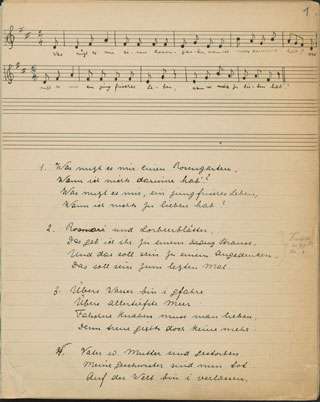 1
Was nügt es mir einen Rosengarten, wann ich nicht darinne hab'? Was
nügt es mir ein jung frieres Leben, wann ich nicht zu lieben hab'.
1. Was nügt es mir einen Rosengarten,
Wann ich nicht darinne hab'?
Was nügt es mir, ein jung frieres Leben,
Wann ich nicht zu lieben hab'?
2. Rosmari und Lorbeerblätter,
Das geb ich ihr zu einem Strauss.
Und das soll sein zu einem Angedenken,
Das soll sein zum letzten Mal.
3. Übers Wasser bin i gfahre
Übers allertiefste Meer.
Falsche Knaben muss man lieben,
Denn treue giebts doch keine mehr.
4. Vater u. Mutter sind gestorben,
Meine Geschwister sind nun tot.
Auf der Welt bin i verlassen,